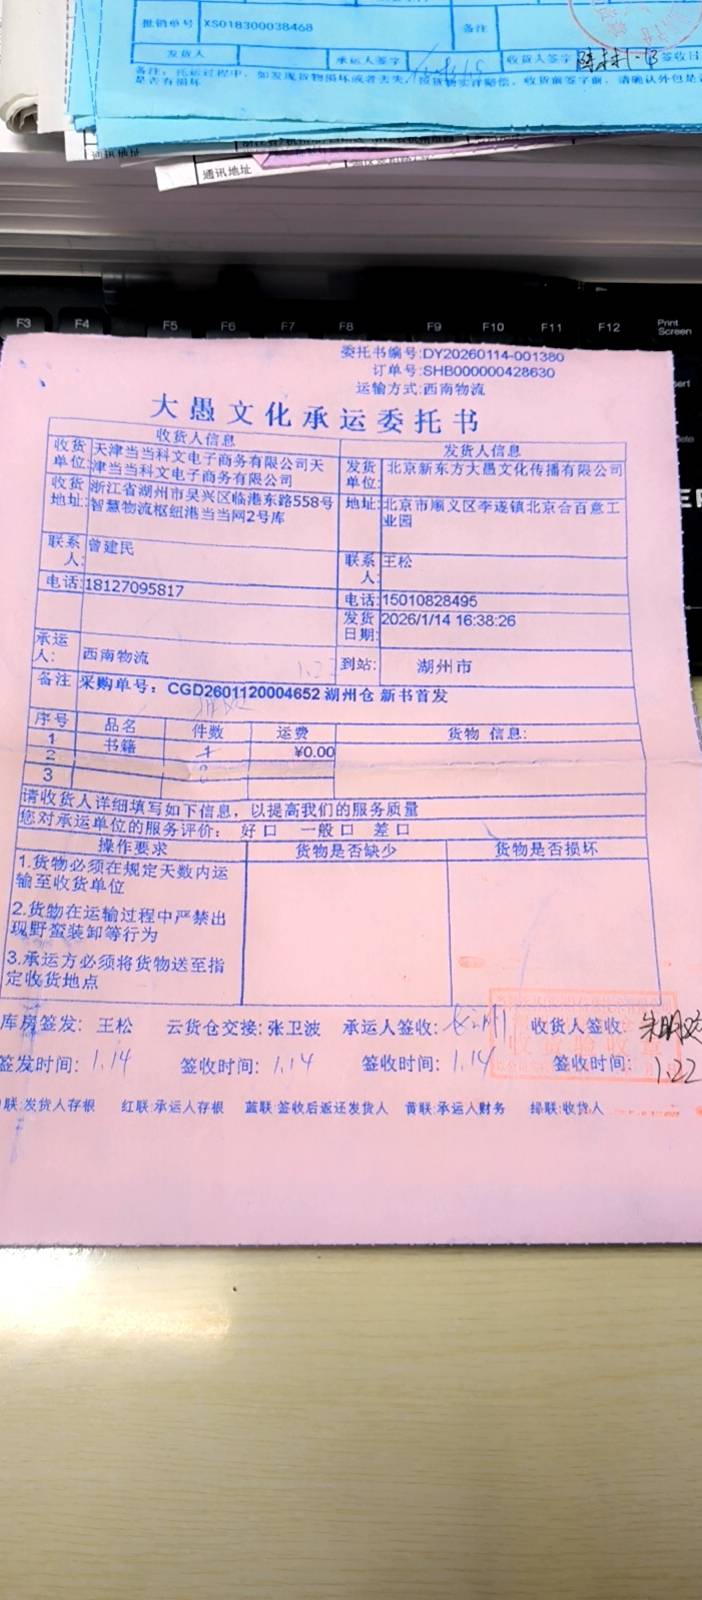 批销单号 XS018300038468 备注
发货人 承运人签字 收货人签字 签收日
备注：托运过程中，如发现货物损坏或者丢失，按货物实洋赔偿。收货前签字前，请确认外包是
是否有损坏
通讯地址
通讯地址
F3 F4 F5 F6 F7 F8 F9 F10 F11 F12 Print Screen
委托书编号:DY20260114-001380
订单号:SHB000000428630
运输方式:西南物流
大愚文化承运委托书
收货人信息 发货人信息
收货单位: 天津当当科文电子商务有限公司天 发货单位: 北京新东方大愚文化传播有限公司
津当当科文电子商务有限公司
收货地址: 浙江省湖州市吴兴区临港东路558号 地址: 北京市顺义区李遂镇北京合百意工
智慧物流枢纽港当当网2号库 业园
联系人: 曾建民 联系人: 王松
电话: 18127095817 电话: 15010828495
发货日期: 2026/1/14 16:38:26
承运人: 西南物流 到站: 湖州市
备注 采购单号：CGD2601120004652 湖州仓 新书首发
序号 品名 件数 运费 货物 信息:
1 书籍 ¥0.00
2
3
请收货人详细填写如下信息，以提高我们的服务质量
您对承运单位的服务评价: 好 口 一般 口 差 口
操作要求 货物是否缺少 货物是否损坏
1.货物必须在规定天数内运
输至收货单位
2.货物在运输过程中严禁出
现野蛮装卸等行为
3.承运方必须将货物送至指
定收货地点
库房签发: 王松 云货仓交接: 张卫波 承运人签收: 收货人签收:
签发时间: 1.14 签收时间: 1.14 签收时间: 1.14 签收时间: 1.22
联:发货人存根 红联:承运人存根 蓝联:签收后返还发货人 黄联:承运人财务 绿联:收货人